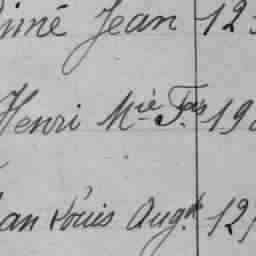 Aimé Jean 12
Henri Mie Fois 19
Jean Louis Aug.te 12